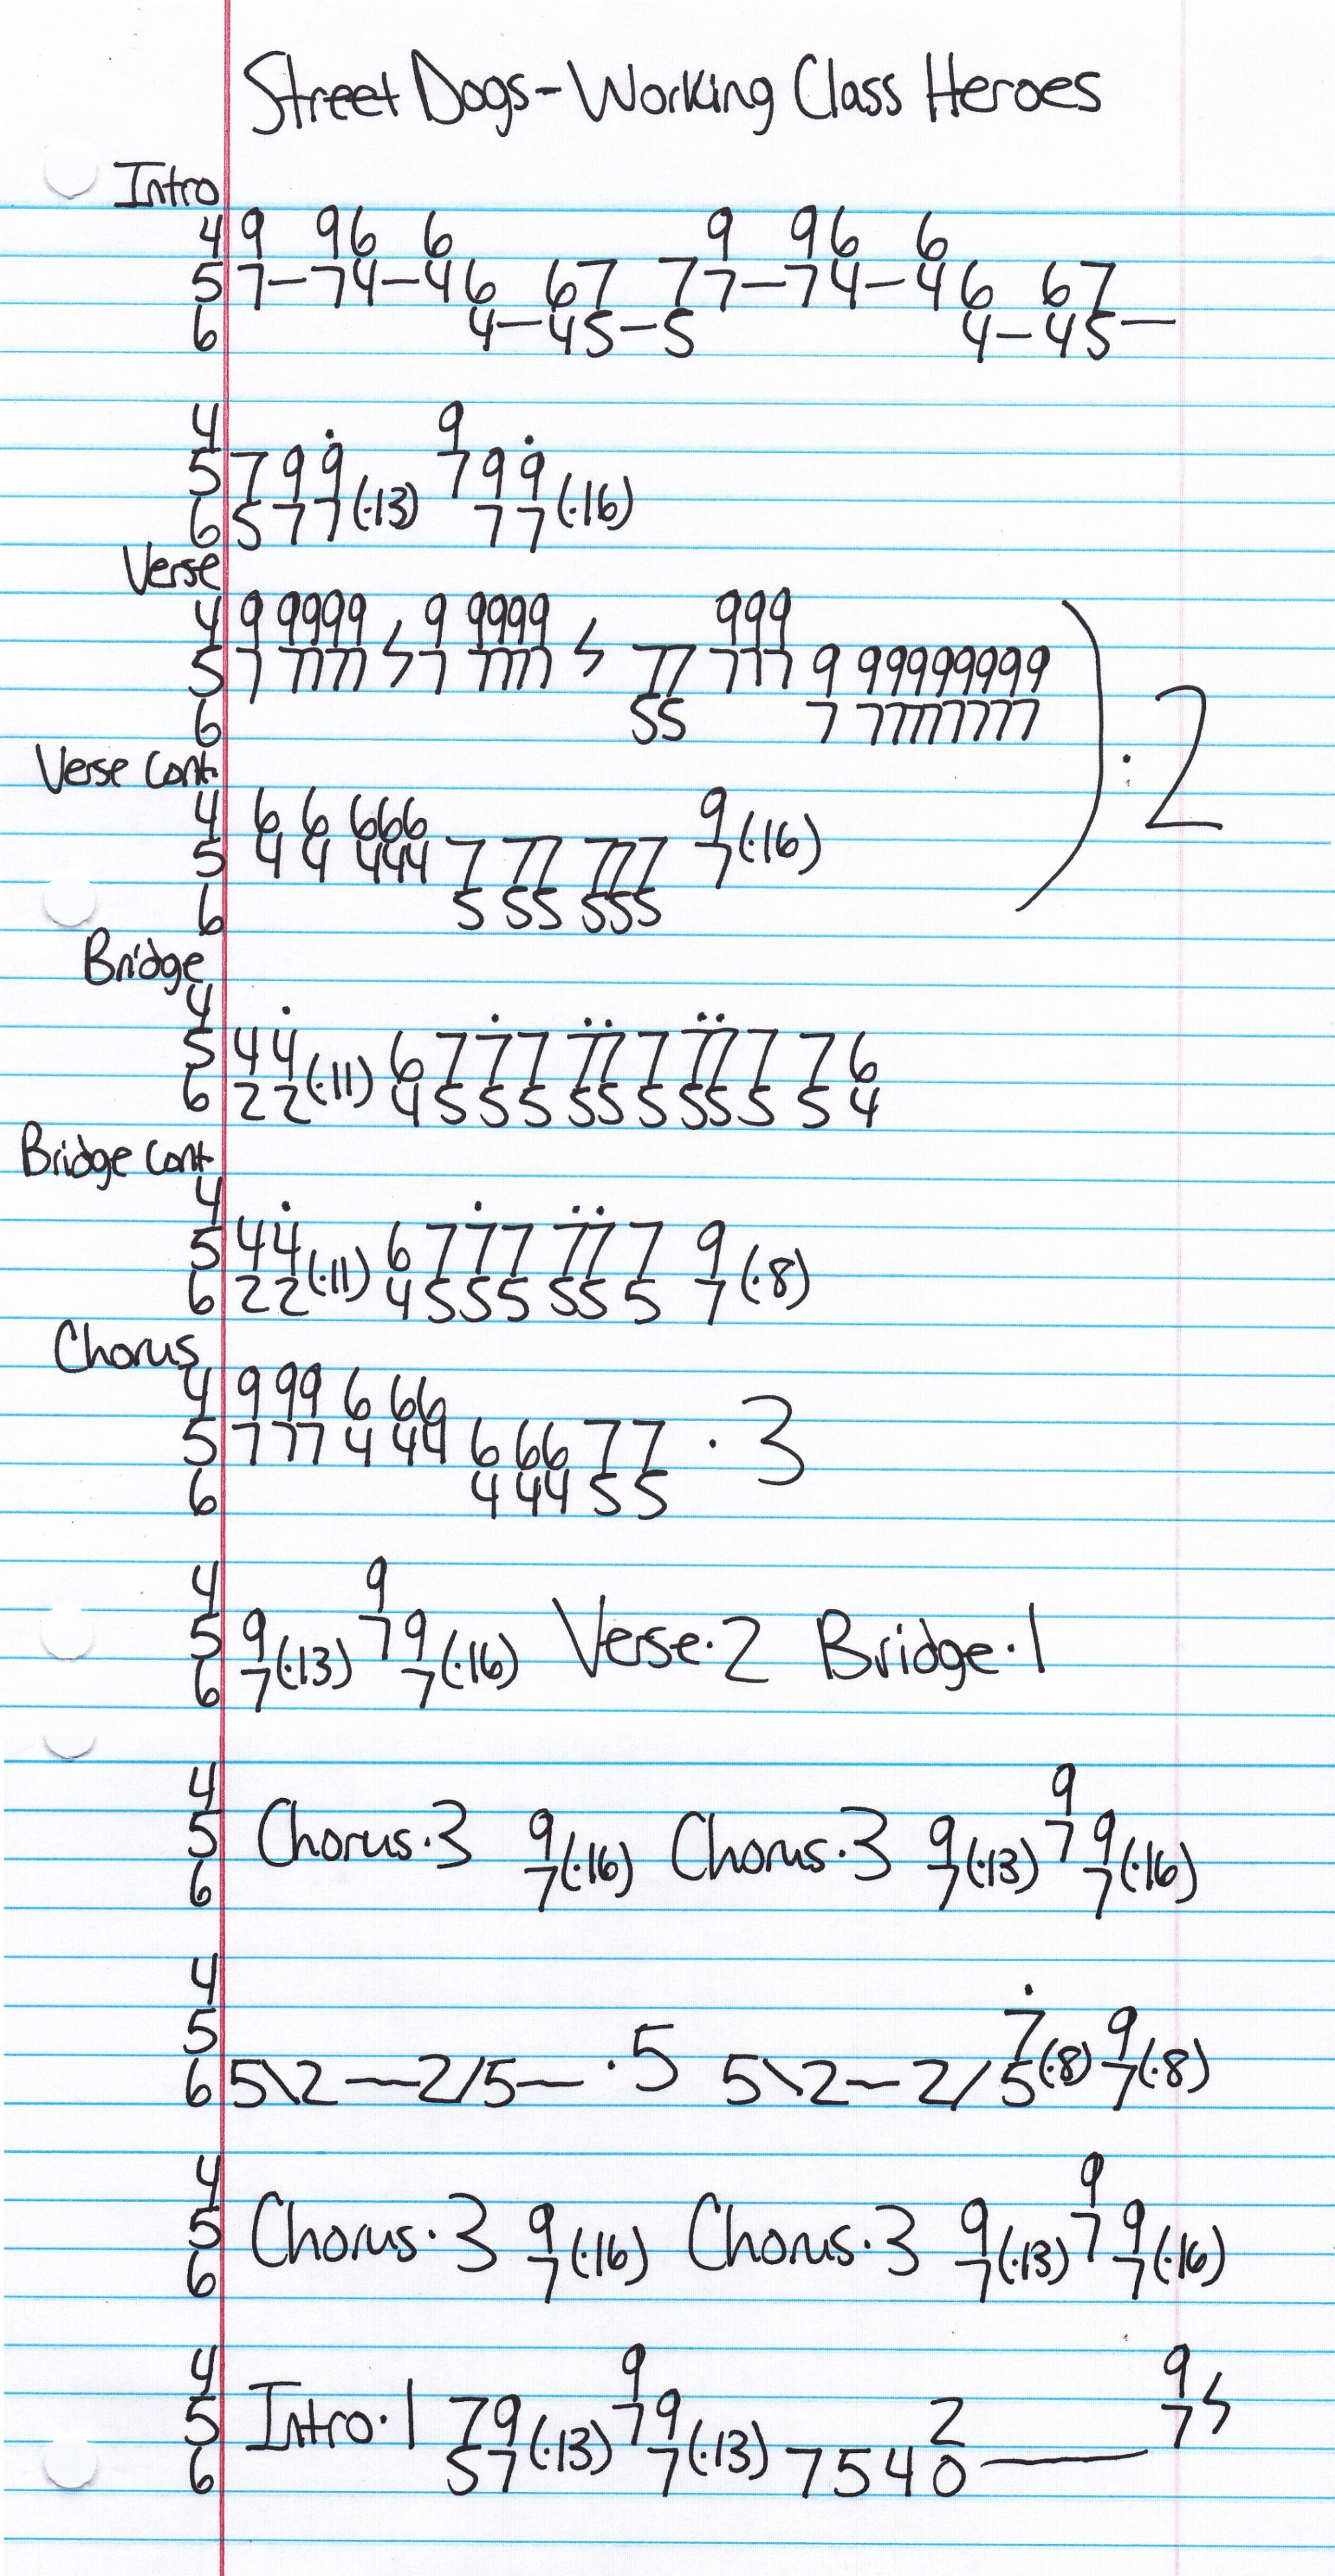 Street Dogs - Working Class Heroes
Intro
4 9 9 6 6 9 9 6 6
5 7 — 7 4 — 4 6 6 7 7 7 — 7 4 — 4 6 6 7
6 4 — 4 5 — 5 4 — 4 5 —
4 9
5 7 9 9 7 9 9
6 5 7 7 (·13) 7 7 (·16)
Verse
4 9 9999 9 9999 999
5 7 7777 7 7777 77 777 9 999999999
6 55 7 77777777
) · 2
Verse Cont.
4 6 6 666 9
5 4 4 444 7 77 777 7 (·16)
6 5 55 555
Bridge
4
5 4 4 6 7 7 7 7 7 7 7 7 7 7 6
6 2 2 (·11) 4 5 5 5 5 5 5 5 5 5 5 4
Bridge Cont.
4
5 4 4 6 7 7 7 7 7 7 9
6 2 2 (·11) 4 5 5 5 5 5 5 7 (·8)
Chorus
4 9 99 6 66
5 7 77 4 44 6 66 7 7 · 3
6 4 44 5 5
4 9
5 9 7 9 Verse · 2 Bridge · 1
6 7 (·13) 7 (·16)
4 9
5 Chorus · 3 9 Chorus · 3 9 7 9
6 7 (·16) 7 (·13) 7 (·16)
4
5 · 5 7 9
6 5\2 — 2/5 — 5\2 — 2/5 (·8) 7 (·8)
4 9
5 Chorus · 3 9 Chorus · 3 9 7 9
6 7 (·16) 7 (·13) 7 (·16)
4 9 9
5 Intro · 1 7 9 7 9 2 7
6 5 7 (·13) 7 (·13) 7 5 4 0 —